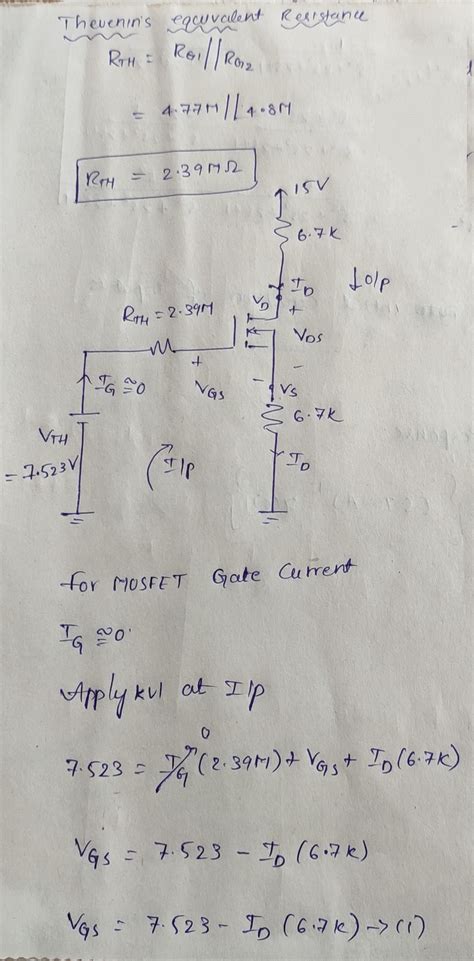 Thevenin's equivalent Resistance
R_TH = R_G1 // R_G2
= 4.77M // 4.8M
R_TH = 2.39MΩ
15V
6.7K
I_D
↓O/p
V_D
+
R_TH = 2.39M
V_DS
+
-
I_G ≅ 0
V_GS
-
V_S
6.7K
V_TH
= 7.523V
I/p
I_D
for MOSFET Gate Current
I_G ≅ 0
Apply KVL at I/p
0
7.523 = I_G (2.39M) + V_GS + I_D (6.7K)
V_GS = 7.523 - I_D (6.7K)
V_GS = 7.523 - I_D (6.7K) → (1)